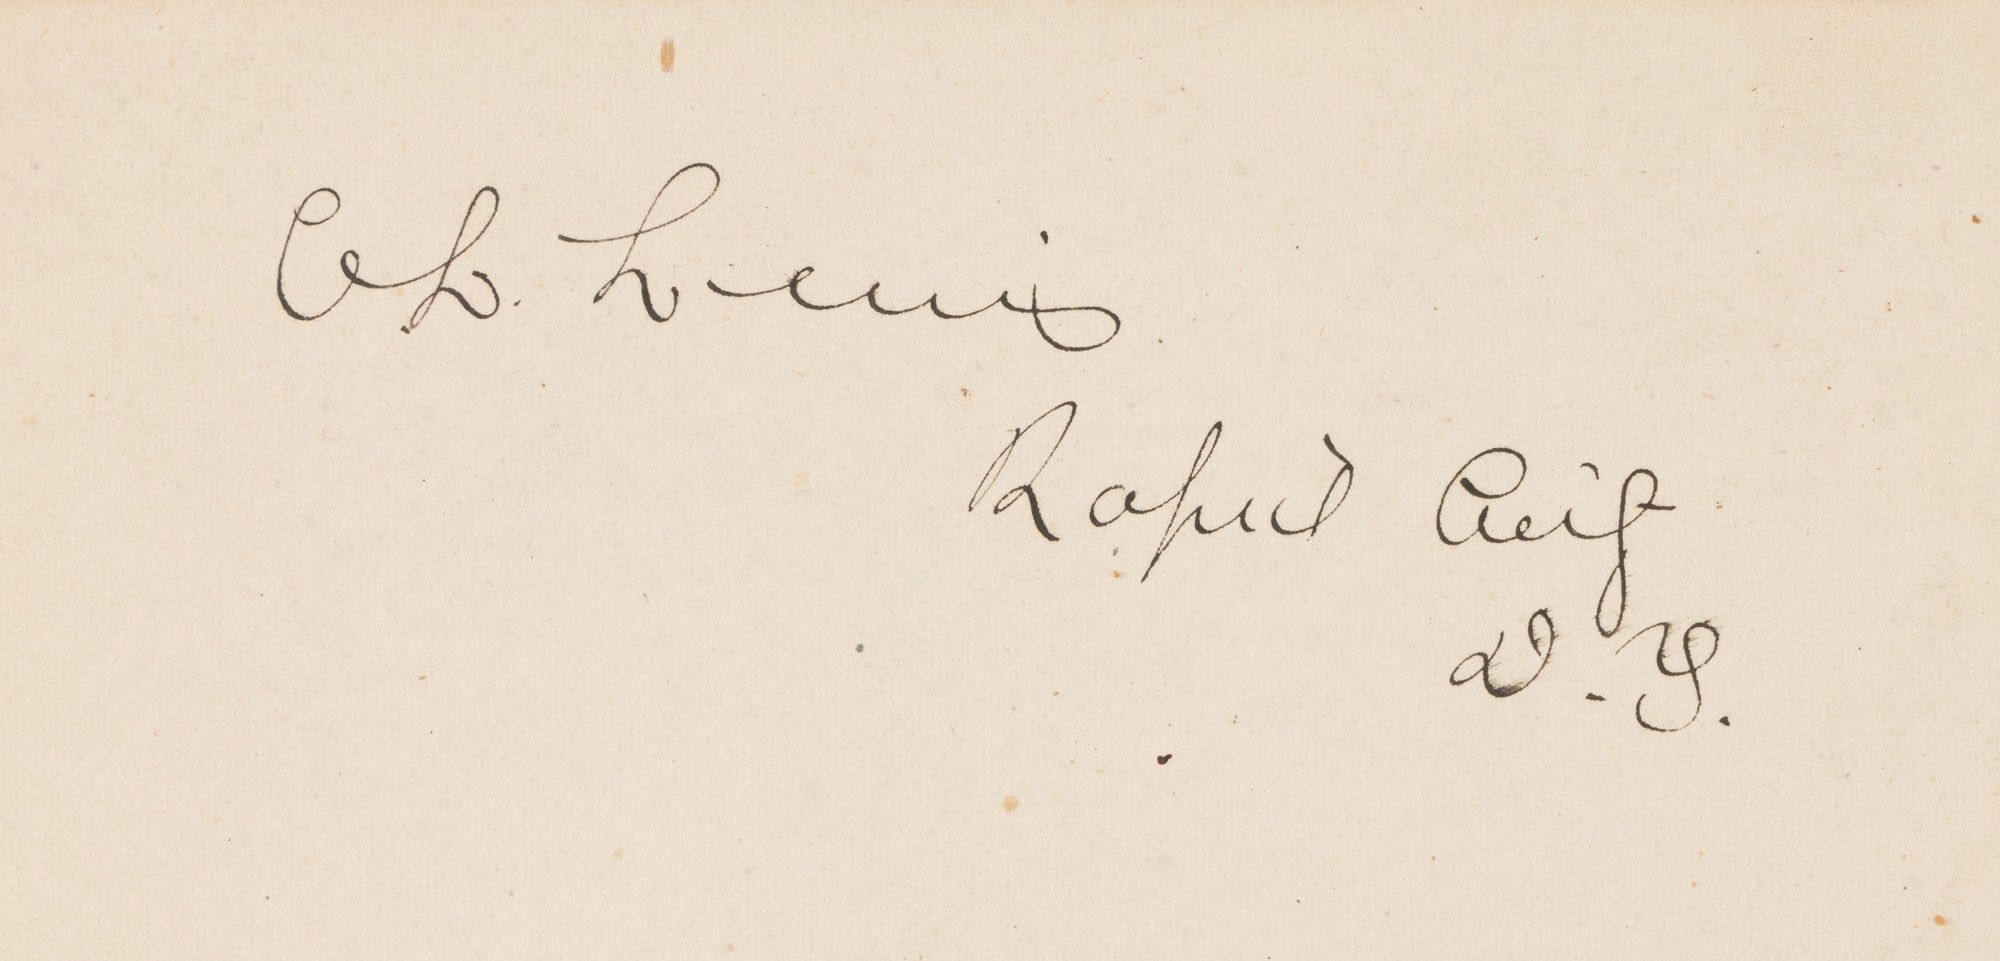 C. L. Lewis
Rapid City
D. T.